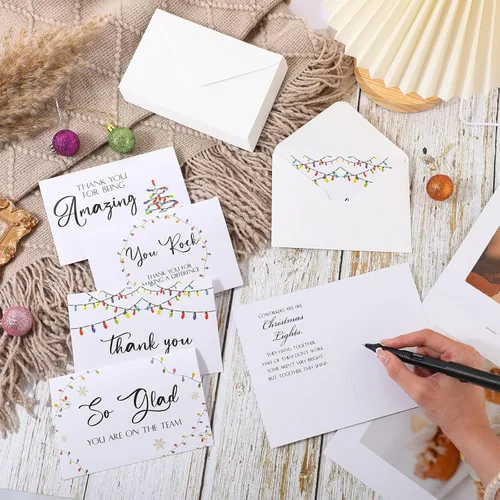 THANK YOU
FOR BEING
Amazing
You Rock
THANK YOU FOR
MAKING A DIFFERENCE
Thank you
So Glad
YOU ARE ON THE TEAM
COWORKERS ARE LIKE
Christmas
Lights.
THEY HANG TOGETHER,
HALF OF THEM DON'T WORK
SOME AREN'T VERY BRIGHT.
BUT TOGETHER, THEY SHINE